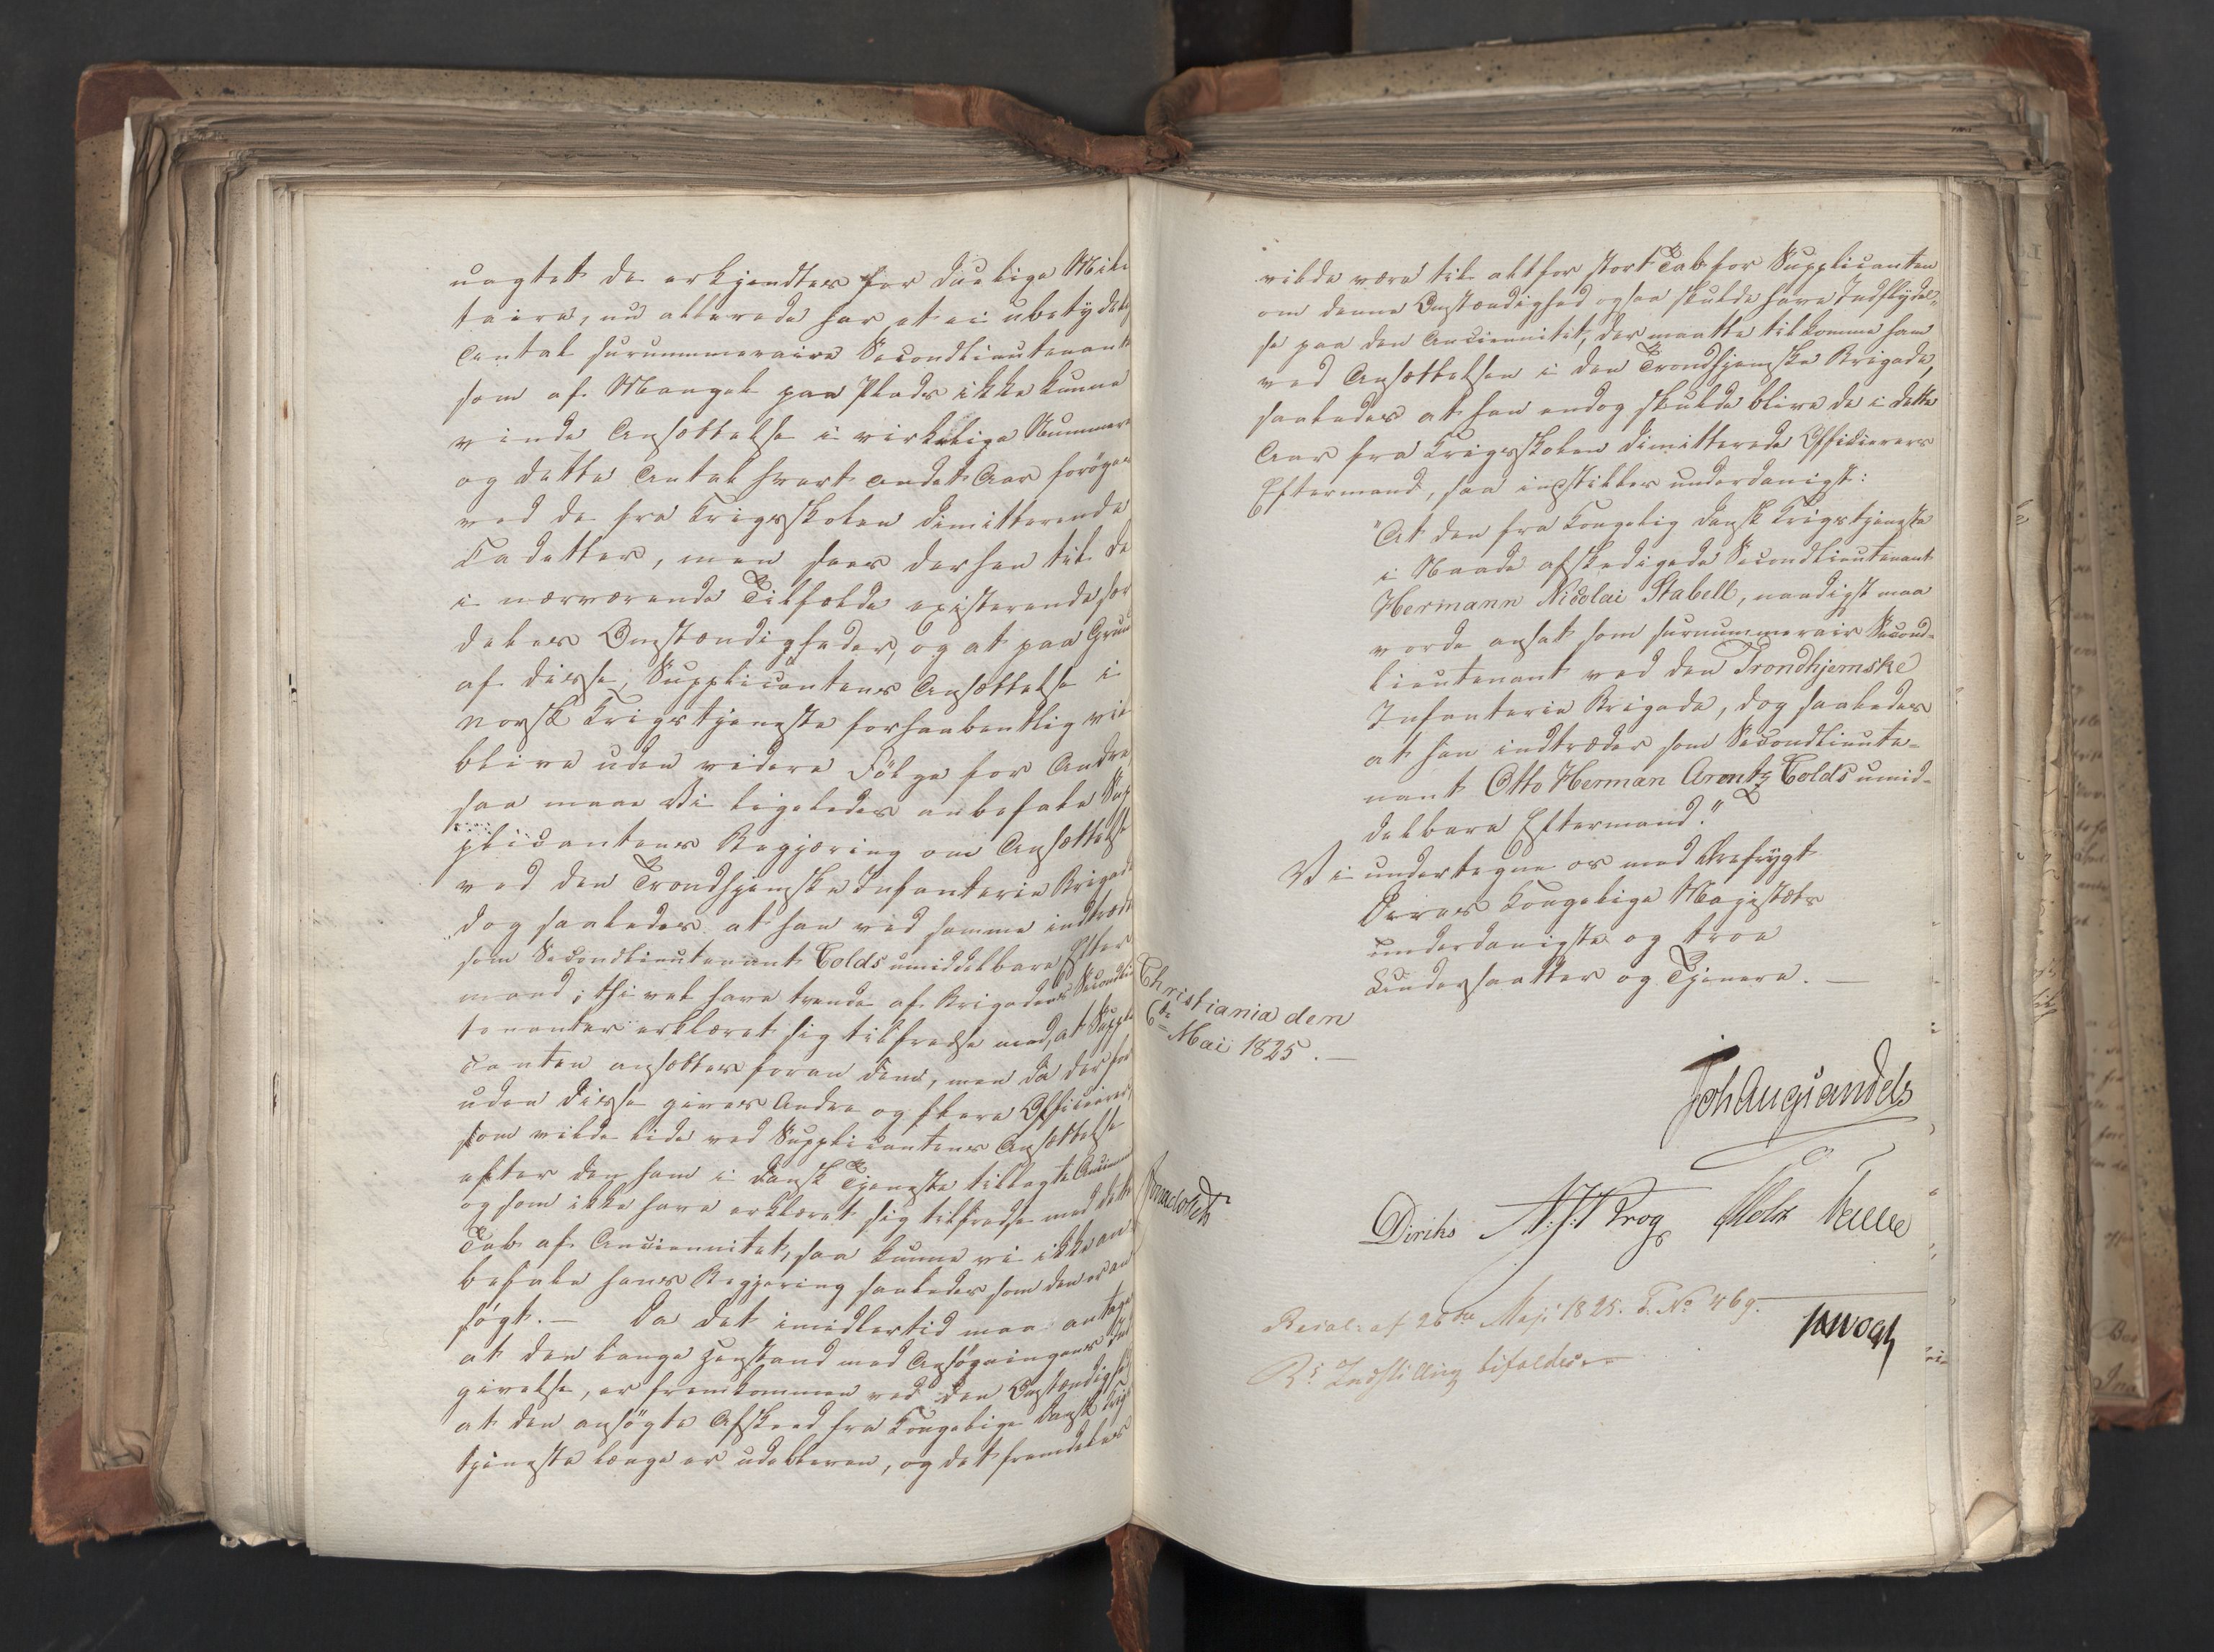 uagtet de erkjendtes for duelige Mili
taire, nu allerede har et ei ubetydelig
Antal surnummeraire Secondlieutenante
som af Mangel paa Plads ikke kunne
vinde Ansættelse i virkelige Nummere
og dette Antal hvert andet Aar forøges
ved de fra Krigsskolen dimitterende
Cadetter, men sees derhen til de
i nærværende Tilfælde existerende sær
deles Omstændigheder, og at paa Grund
af disse, Supplicantens Ansættelse i
norsk Krigstjeneste forhaabentlig vil
blive uden videre Følge for Andre,
saa maae Vi ligeledes anbefale Sup
plicantens Begjæring om Ansættelse
ved den Trondhjemske Infanterie Brigade
dog saaledes at han ved samme indtræder
som Secondlieutenant Colds umiddelbare Efter
mand; thi vel have trende af Brigadens Secondlieu
tenanter erklæret sig tilfredse med, at Suppli
canten ansættes foran dem, men da der for
uden disse gives Andre og flere Officierer,
som vilde lide ved Supplicantens Ansættelse
efter den ham i dansk Tjeneste tillagte Ancien
og som ikke have erklæret sig tilfredse med dette
Tab af Anciennitet, saa kunne vi ikke an
befale hans Begjæring saaledes som den er an
søgt. — Da det imidlertid maa antages
at den lange Henstand med Ansøgningens Ind
givelse, er fremkommen ved den Omstændighed
at den ansøgte Afskeed fra Kongelige dansk Krigs
tjeneste længe er udebleven, og det fremdeles
vilde være til altfor stort Tab for Supplicanten
om denne Omstændighed ogsaa skulde have Indflydel-
se paa den Anciennitet, der maatte tilkomme ham
ved Ansættelsen i den Trondhjemske Brigade,
saaledes at han endog skulde blive de i dette
Aar fra Krigsskolen dimitterede Officierers
Eftermand, saa indstilles underdanigst:
"At den fra Kongelig dansk Krigstjeneste
i Naade afskedigede Secondlieutenant
Hermann Nicolai Stabell, naadigst maa
vorde ansat som surnummerair Second-
lieutenant ved den Trondhjemske
Infanterie Brigade, dog saaledes
at han indtræder som Secondlieute-
nant Otto Herman Arentz Colds umid-
delbare Eftermand."
Vi undertegne os med Ærefrygt
Deres Kongelige Majestæts
underdanigste og troe
Undersaatter og Tjenere. —
Christiania den
6te Mai 1825. —
Joh Aug Sandels
Diriks Krog Motz
Resol: af 26de Maji 1825. No 469.
Rs Indstilling bifaldes
JHVogt